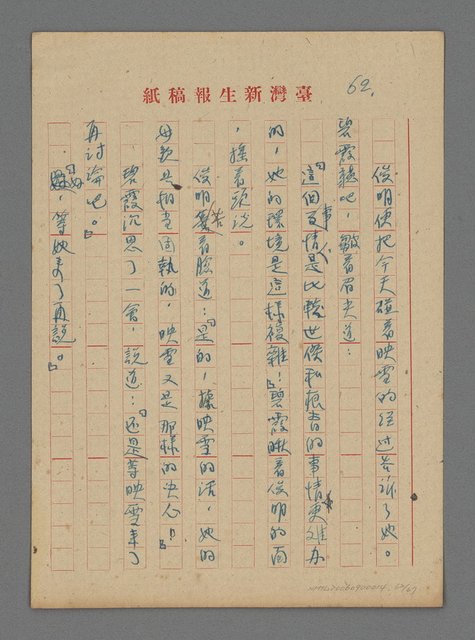 62.
臺灣新生報稿紙
俊明便把今天碰着映雪的經过告訴了她。
碧霞聽吧，皺着眉头道：
「這個事情是比較世傑私報者的事情更难办
的，她的環境是這樣複雜！」碧霞瞅着俊明的面
，搖着頭說。
俊明苦着臉道：「是的，據映雪的话，她的
母親是相當固執的，映雪又是那樣的决心！」
碧霞沉思了一會，說道：「还是等映雪来了
再讨論吧。」
「好，等她来了再說。」